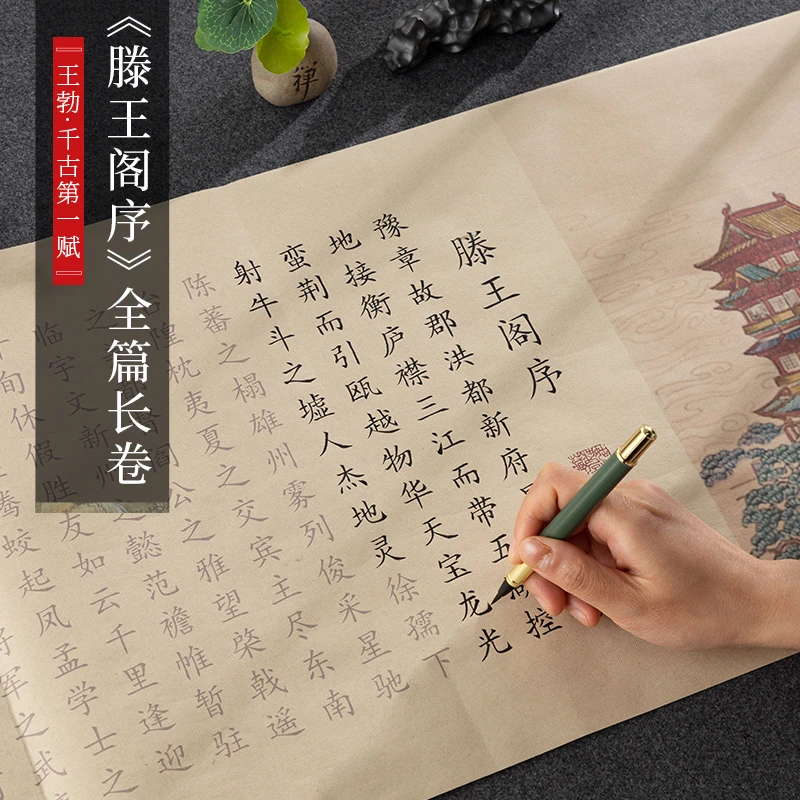 《滕王阁序》全篇长卷
『王勃·千古第一赋』
禅
滕王阁序
豫章故郡洪都新府
地接衡庐襟三江而带五湖控
蛮荆而引瓯越物华天宝龙光
射牛斗之墟人杰地灵徐孺下
陈蕃之榻雄州雾列俊采星驰
台隍枕夷夏之交宾主尽东南
之阎公之雅望棨戟遥
临宇文新州之懿范襜帷暂驻
旬休假胜友如云千里逢迎
腾蛟起凤孟学士之
将军之武